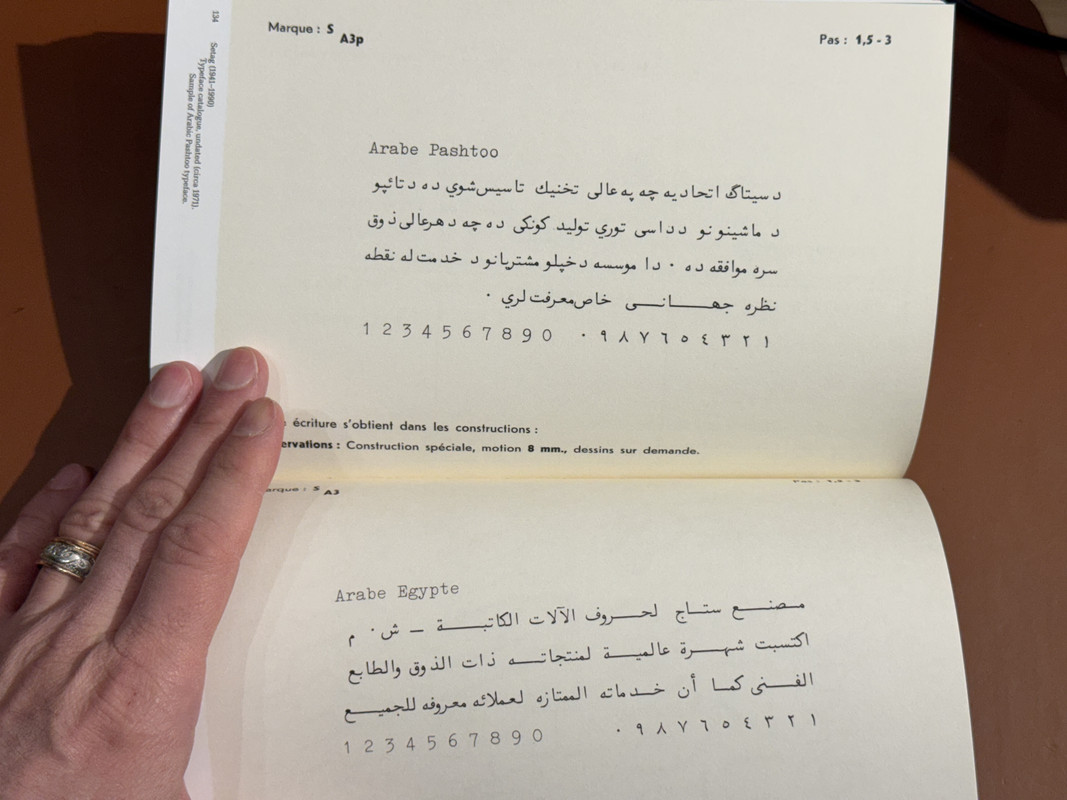 134
Setag (1941–1990)
Typeface catalogue, undated (circa 1971).
Sample of Arabic Pashtoo typeface.
Marque : S A3p
Pas : 1,5 - 3
Arabe Pashtoo
د سیتاګ اتحادیه چه په عالی تخنیك تاسیس شوي ده د تائپو
د ماشینو نو د داسی توري تولید کونکی ده چه د هر عالی ذوق
سره موافقه ده ۰ دا موسسه د خپلو مشتریانو د خدمت له نقطه
نظره جهـــانــی خاص معرفت لري ۰
1 2 3 4 5 6 7 8 9 0 ٠ ٩ ٨ ٧ ٦ ٥ ٤ ٣ ٢ ١
écriture s'obtient dans les constructions :
ervations : Construction spéciale, motion 8 mm., dessins sur demande.
arque : S A3
Arabe Egypte
مـصنــع ستــاج لحــروف الآلات الكاتبـــة ــ ش ٠ م
اكتسبت شهــرة عالميــة لمنتجاتــه ذات الذوق والطابع
الفــنى كمــا أن خــدماته الممتازه لعملائه معروفه للجميــع
1 2 3 4 5 6 7 8 9 0 ٠ ٩ ٨ ٧ ٦ ٥ ٤ ٣ ٢ ١